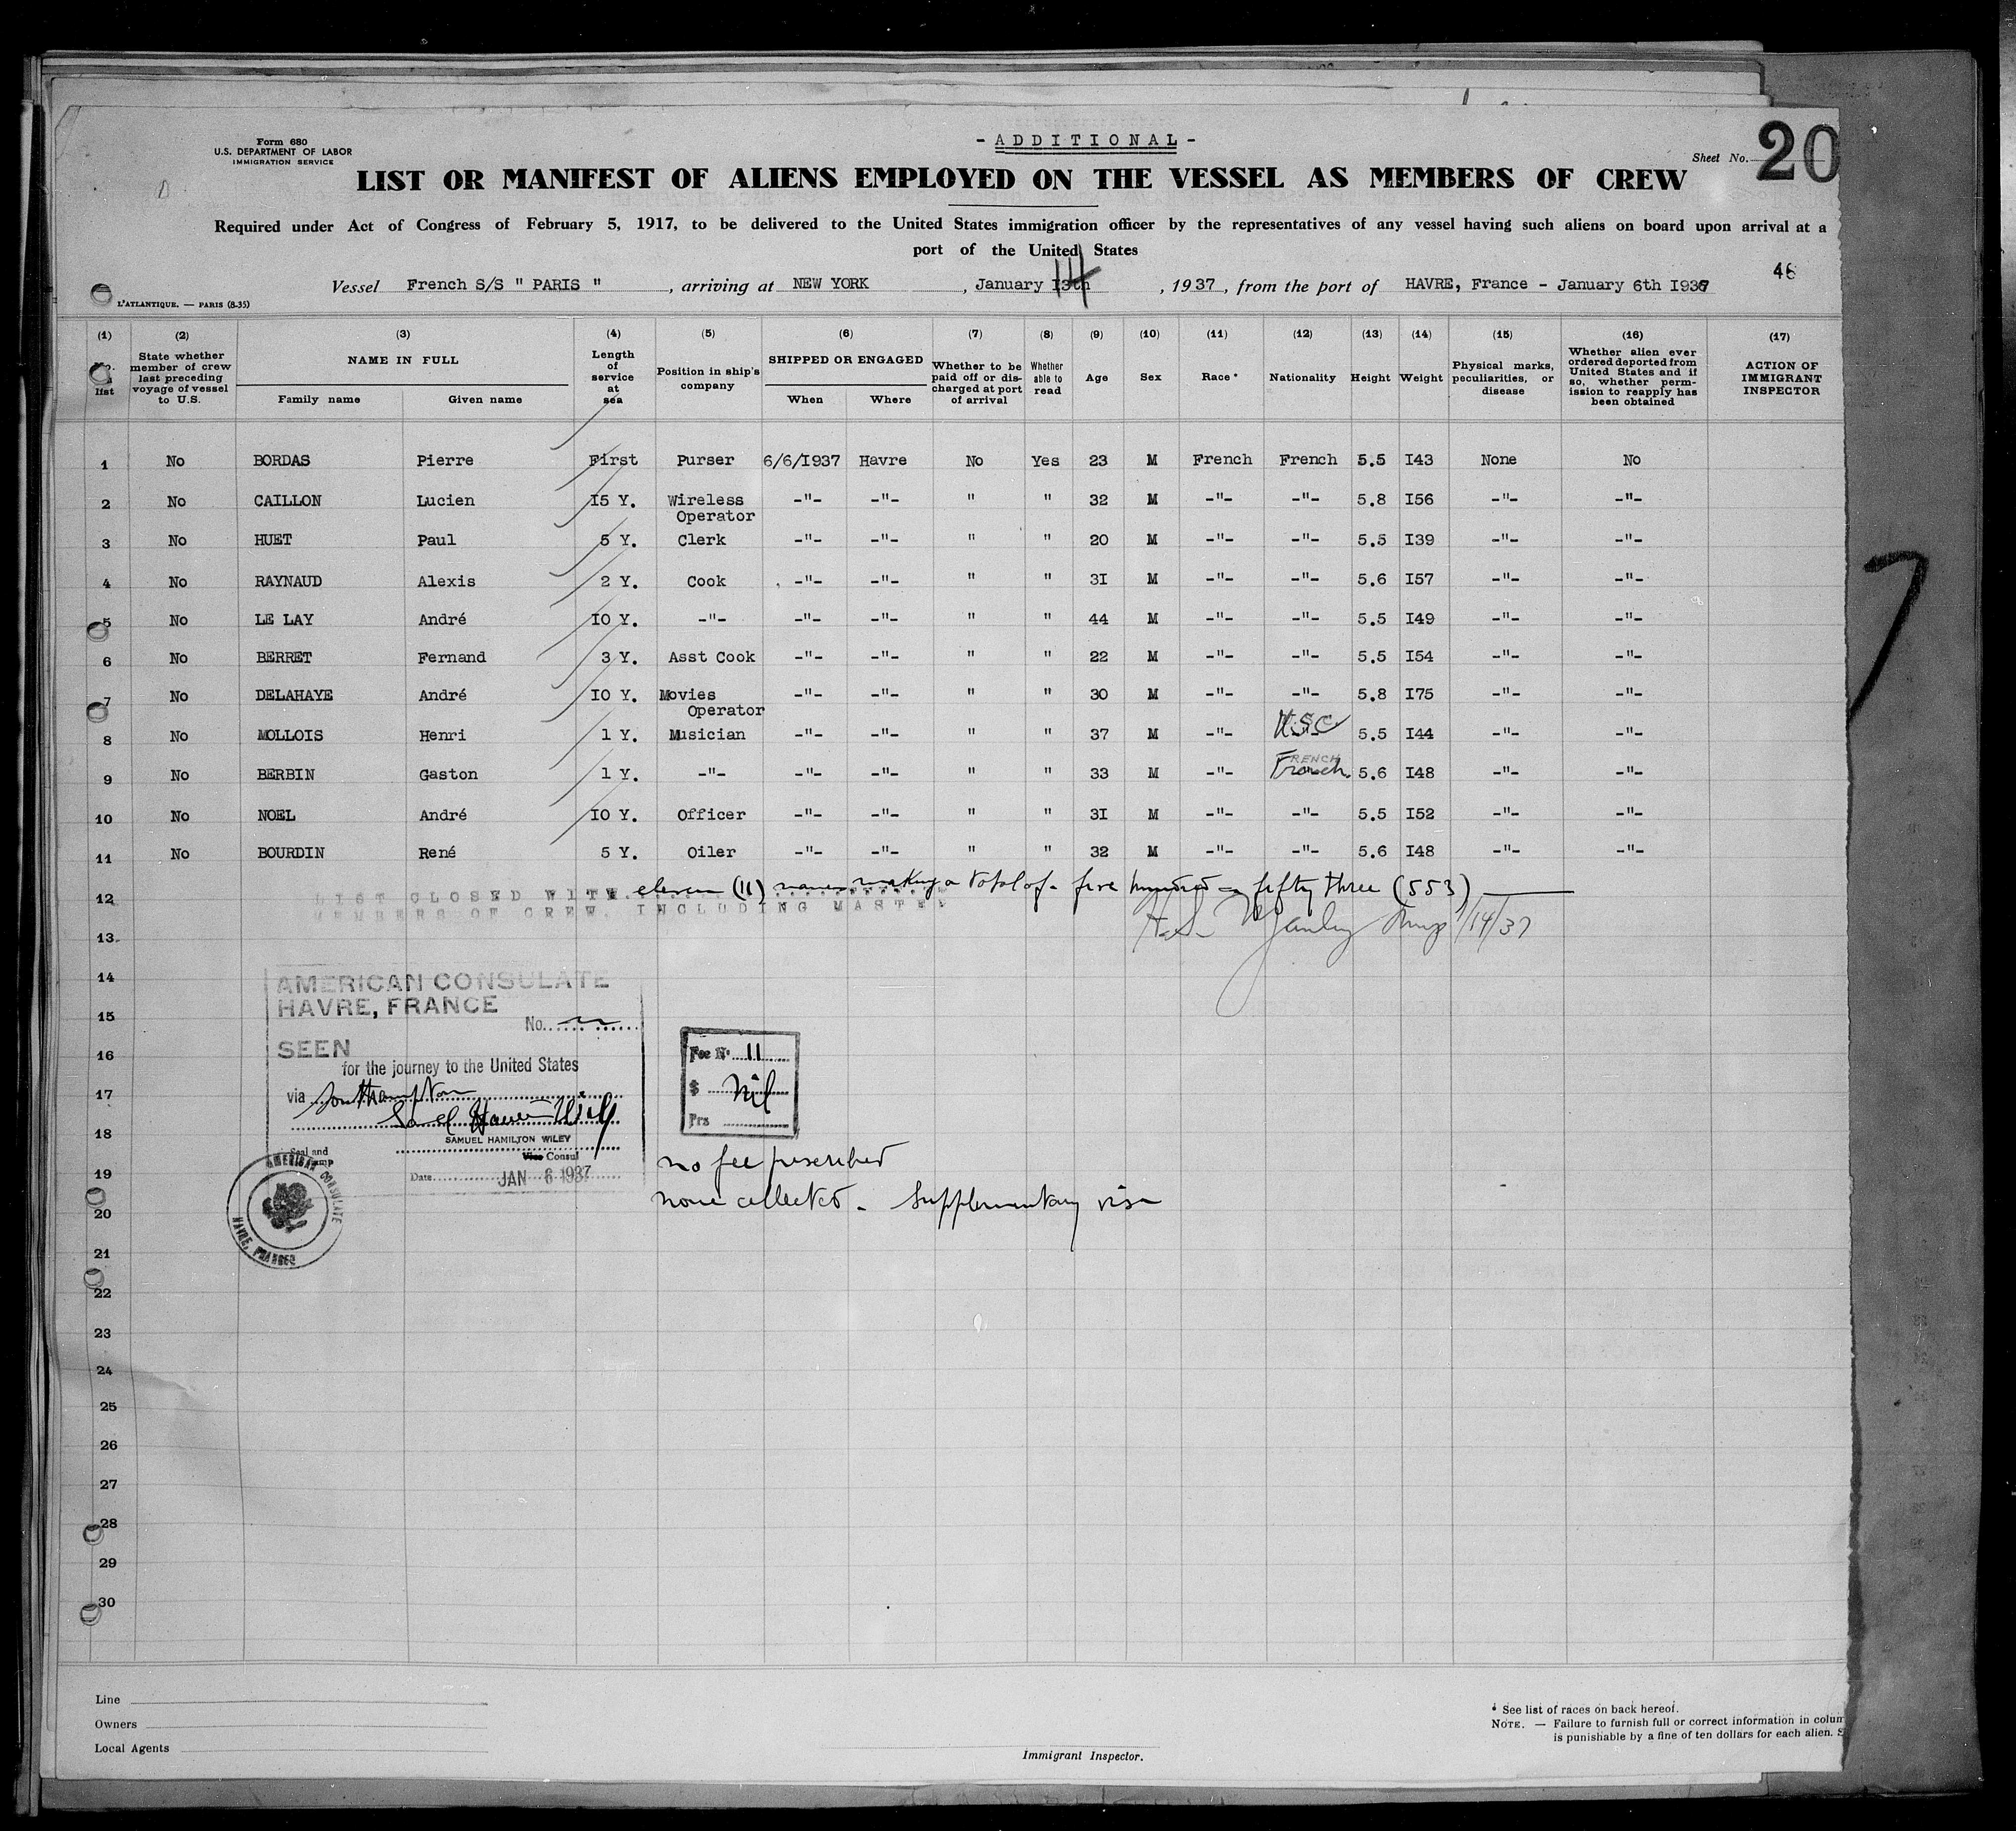 - ADDITIONAL -
Form 680
U.S. DEPARTMENT OF LABOR
IMMIGRATION SERVICE
Sheet No. 20
LIST OR MANIFEST OF ALIENS EMPLOYED ON THE VESSEL AS MEMBERS OF CREW
Required under Act of Congress of February 5, 1917, to be delivered to the United States immigration officer by the representatives of any vessel having such aliens on board upon arrival at a
port of the United States
46
Vessel French S/S " PARIS " , arriving at NEW YORK , January 13th 14 , 1937, from the port of HAVRE, France - January 6th I937
L'ATLANTIQUE. — PARIS (8-35)
(1) (2) (3) (4) (5) (6) (7) (8) (9) (10) (11) (12) (13) (14) (15) (16) (17)
list
State whether member of crew last preceding voyage of vessel to U.S.
NAME IN FULL
Family name Given name
Length of service at sea
Position in ship's company
SHIPPED OR ENGAGED
When Where
Whether to be paid off or discharged at port of arrival
Whether able to read
Age Sex Race * Nationality Height Weight
Physical marks, peculiarities, or disease
Whether alien ever ordered deported from United States and if so, whether permission to reapply has been obtained
ACTION OF IMMIGRANT INSPECTOR
1 No BORDAS Pierre First Purser 6/6/I937 Havre No Yes 23 M French French 5.5 I43 None No
2 No CAILLON Lucien I5 Y. Wireless Operator -"- -"- " " 32 M -"- -"- 5.8 I56 -"- -"-
3 No HUET Paul 5 Y. Clerk -"- -"- " " 20 M -"- -"- 5.5 I39 -"- -"-
4 No RAYNAUD Alexis 2 Y. Cook -"- -"- " " 3I M -"- -"- 5.6 I57 -"- -"-
5 No LE LAY André IO Y. -"- -"- -"- " " 44 M -"- -"- 5.5 I49 -"- -"-
6 No BERRET Fernand 3 Y. Asst Cook -"- -"- " " 22 M -"- -"- 5.5 I54 -"- -"-
7 No DELAHAYE André IO Y. Movies Operator -"- -"- " " 30 M -"- -"- 5.8 I75 -"- -"-
8 No MOLLOIS Henri 1 Y. Musician -"- -"- " " 37 M -"- U.S.C. 5.5 I44 -"- -"-
9 No BERBIN Gaston 1 Y. -"- -"- -"- " " 33 M -"- FRENCH French. 5.6 I48 -"- -"-
10 No NOEL André IO Y. Officer -"- -"- " " 3I M -"- -"- 5.5 I52 -"- -"-
11 No BOURDIN René 5 Y. Oiler -"- -"- " " 32 M -"- -"- 5.6 I48 -"- -"-
12 LIST CLOSED WITH eleven (11) names making a total of five hundred fifty three (553)
MEMBERS OF CREW, INCLUDING MASTER
13 1/14/37
14
AMERICAN CONSULATE
HAVRE, FRANCE
15
No.
16
SEEN
for the journey to the United States
17
via Southampton
18
SAMUEL HAMILTON WILEY
Vice Consul
Seal and
Date JAN 6 1937
AMERICAN CONSULATE
HAVRE, FRANCE
Fee No 11
$ nil
Frs
19 no fee prescribed
20 none collected - Supplementary visa
21
22
23
24
25
26
27
28
29
30
Line
Owners
Local Agents
Immigrant Inspector.
* See list of races on back hereof.
NOTE. — Failure to furnish full or correct information in colum
is punishable by a fine of ten dollars for each alien. S